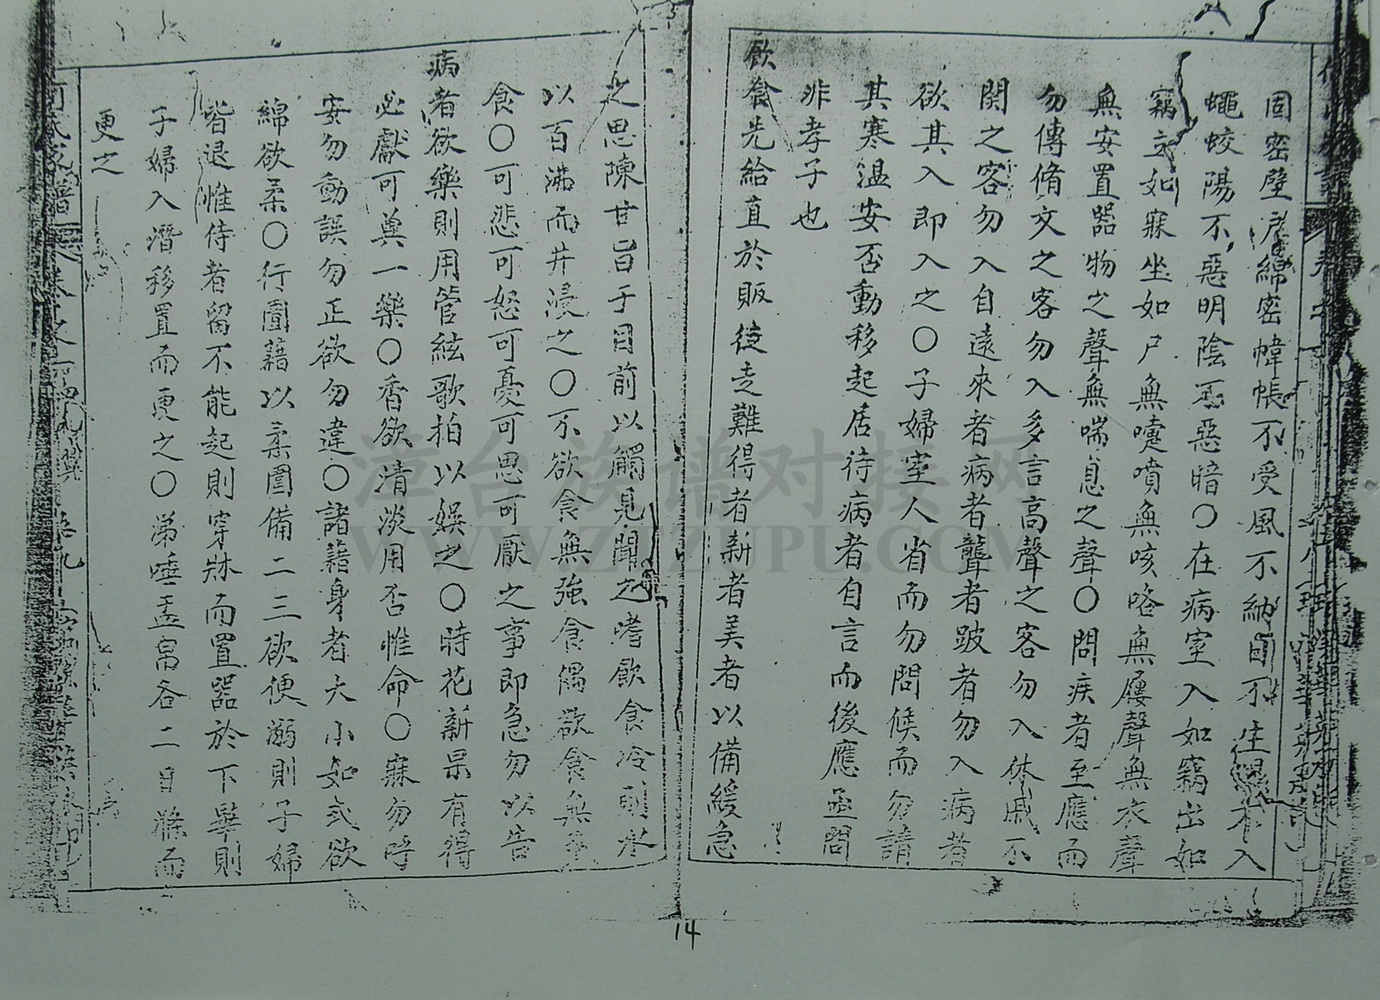 固密壁戶綿密幃帳不受風不納日不生濕不入
蠅蛟陽不惡明陰不惡暗〇在病室入如竊出如
竊立如寐坐如尸無嚏噴無咳咯無屨聲無衣聲
無安置器物之聲無喘息之聲〇問疾者至應而
勿傳脩文之客勿入多言高聲之客勿入休戚不
関之客勿入自遠來者病者聾者跛者勿入病者
欲其入即入之〇子婦室人省而勿問候而勿請
其寒溫安否動移起居待病者自言而後應亟問
非孝子也
飲食先給直於販徒走難得者新者美者以備緩急
之思陳甘旨于目前以觸見聞之嗜飲食冷則
以百沸而井浸之〇不欲食無強食偶欲食無
食〇可悲可怒可憂可思可厭之事即急勿以告
病者欲樂則用管絃歌拍以娛之〇時花新果有得
必獻可兾一樂〇香欲清淡用否惟命〇寐勿呼
安勿動誤勿正欲勿違〇諸藉身者大小如式欲
綿欲柔〇行圊藉以柔圊備二三欲便溺則子婦
皆退惟侍者留不能起則穿牀而置器於下舉則
子婦入潛移置而更之〇第唾盂畚各二日滌而
更之
卷之
氏家譜
14
漳台族谱对接网
WWW.ZTZUPU.COM